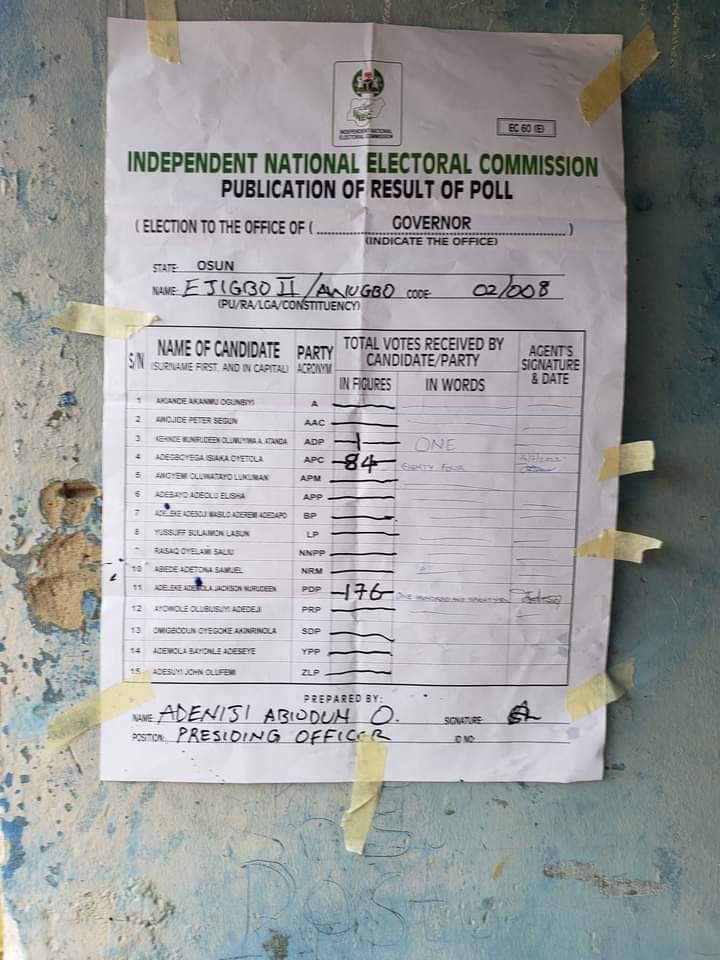 INEC
INDEPENDENT NATIONAL
ELECTORAL COMMISSION
EC 60 (E)
INDEPENDENT NATIONAL ELECTORAL COMMISSION
PUBLICATION OF RESULT OF POLL
( ELECTION TO THE OFFICE OF ( GOVERNOR )
(INDICATE THE OFFICE)
STATE: OSUN
NAME: EJIGBO II / AWUGBO CODE: 02/008
(PU/RA/LGA/CONSTITUENCY)
S/N NAME OF CANDIDATE (SURNAME FIRST, AND IN CAPITAL) PARTY ACRONYM TOTAL VOTES RECEIVED BY CANDIDATE/PARTY AGENT'S SIGNATURE & DATE
IN FIGURES IN WORDS
1 AKIANDE AKANMU OGUNBIYI A
2 AWOJIDE PETER SEGUN AAC
3 KEHINDE MUNIRUDEEN OLUMUYIWA A. ATANDA ADP 1 ONE
4 ADEGBOYEGA ISIAKA OYETOLA APC 84 EIGHTY FOUR
5 AWOYEMI OLUWATAYO LUKUMAN APM
6 ADEBAYO ADEOLU ELISHA APP
7 ADELEKE ADESOJI MASILO ADEREMI ADEDAPO BP
8 YUSSUFF SULAIMON LASUN LP
RASAQ OYELAMI SALIU NNPP
10 ABEDE ADETONA SAMUEL NRM
11 ADELEKE ADEMOLA JACKSON NURUDEEN PDP 176 ONE HUNDRED AND SEVENTY SIX
12 AYOWOLE OLUBUSUYI ADEDEJI PRP
13 OMIGBODUN OYEGOKE AKINRINOLA SDP
14 ADEMOLA BAYONLE ADESEYE YPP
15 ADESUYI JOHN OLUFEMI ZLP
PREPARED BY:
NAME: ADENIJI ABIODUN O. SIGNATURE:
POSITION: PRESIDING OFFICER ID NO:
POST